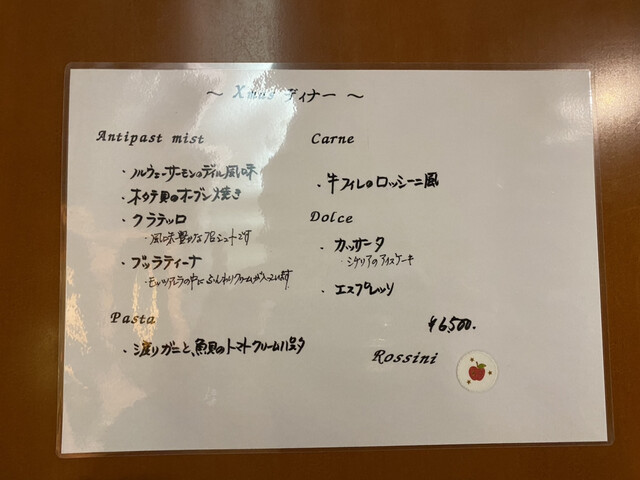 ～ Xmas ディナー ～
Antipast mist
・ノルウェーサーモンのディル風味
・ホタテ貝のオーブン焼き
・クラテッロ
・風味豊かな生ハムです
・ブッラティーナ
・モッツァレラの中にふんわりクリームが入っています
Pasta
・渡りガニと、魚貝のトマトクリーム
Carne
・牛フィレのロッシーニ風
Dolce
・カッサータ
・シチリアのアイスケーキ
・エスプレッソ
¥6,500.
Rossini